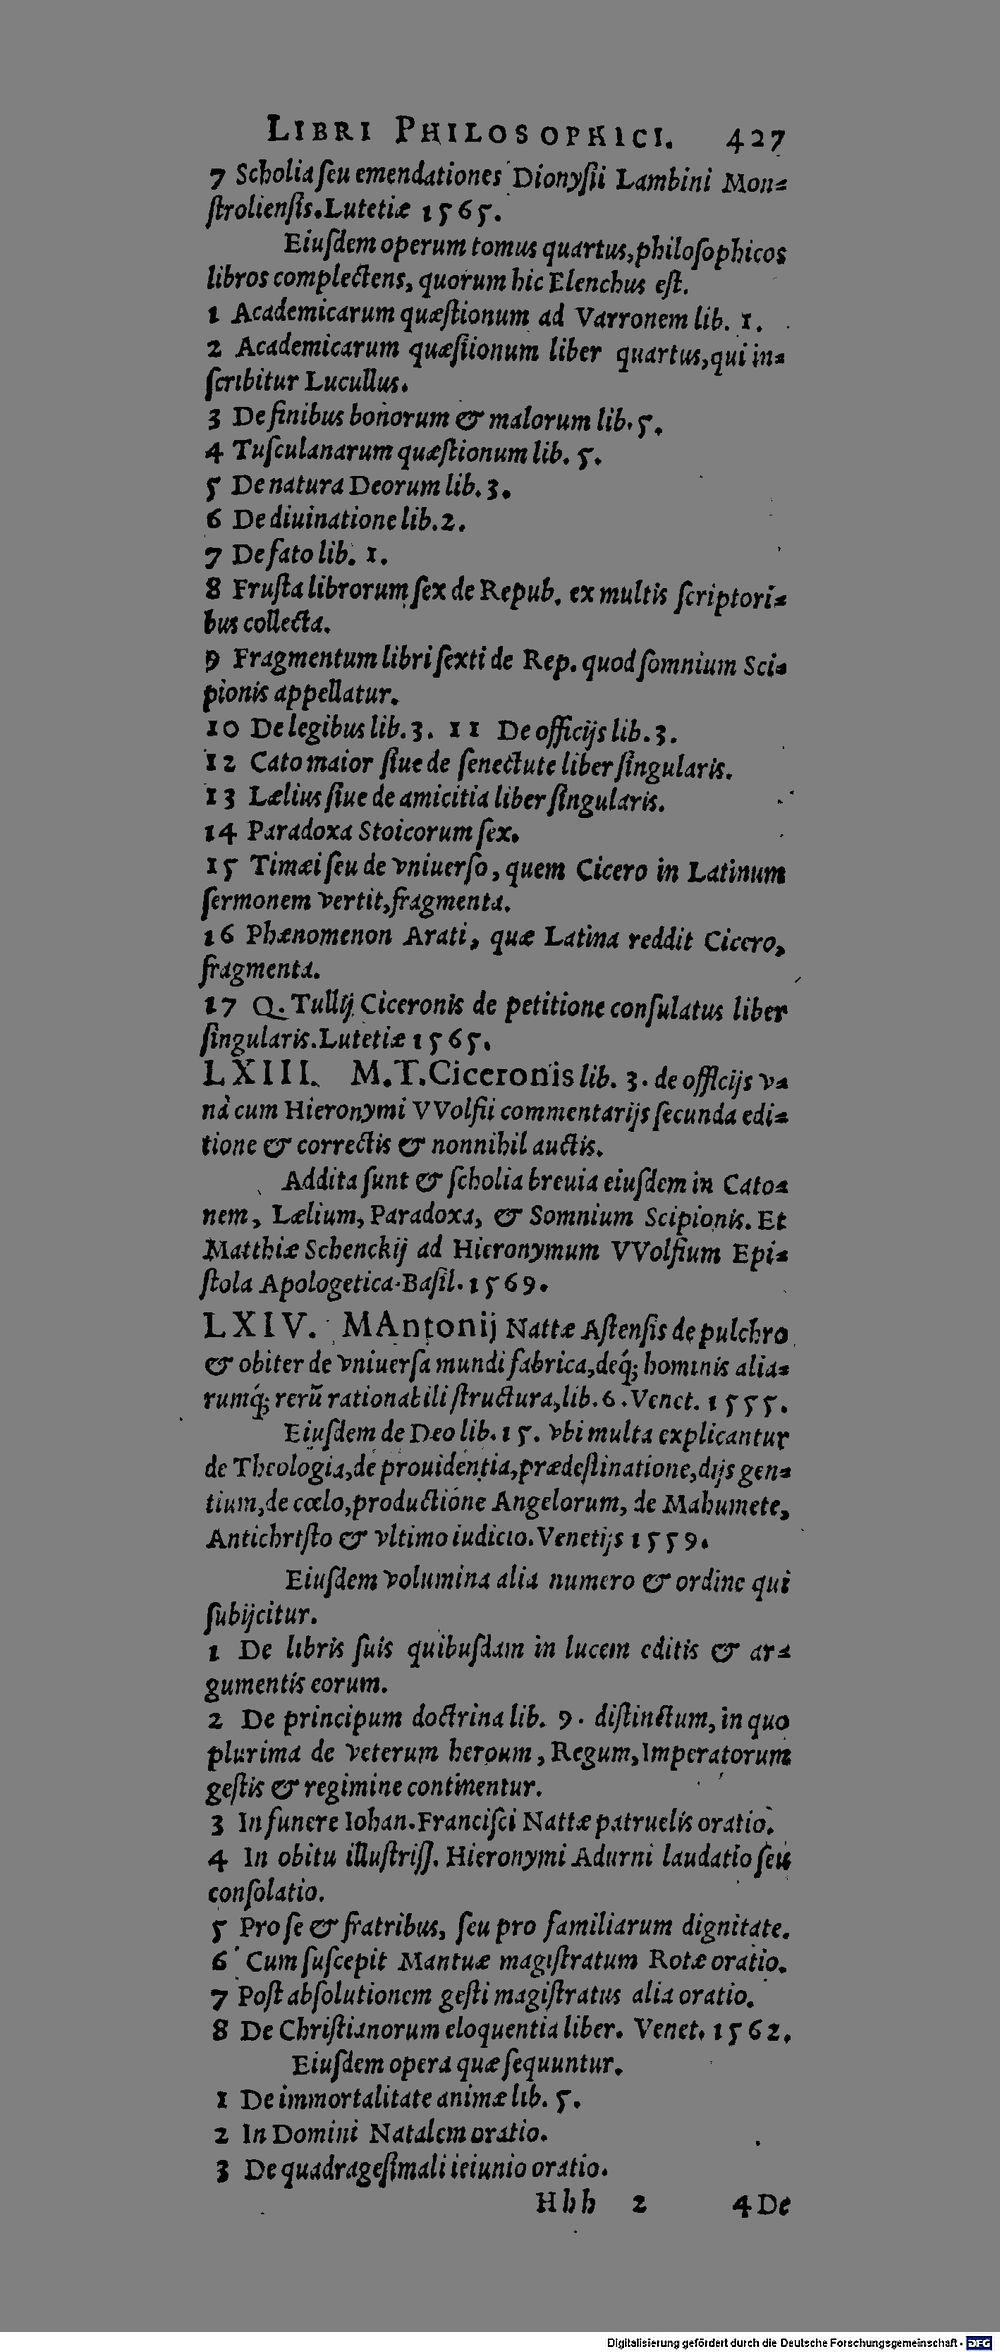 LIBRI PHILOSOPHICI. 427
7 Scholia ſeu emendationes Dionyſii Lambini Mon-
ſtrolienſis. Lutetiæ 1565.
Eiuſdem operum tomus quartus, philoſophicos
libros complectens, quorum hic Elenchus eſt.
1 Academicarum quæſtionum ad Varronem lib. 1.
2 Academicarum quæſtionum liber quartus, qui in-
ſcribitur Lucullus.
3 De finibus bonorum & malorum lib. 5.
4 Tuſculanarum quæſtionum lib. 5.
5 De natura Deorum lib. 3.
6 De diuinatione lib. 2.
7 De fato lib. 1.
8 Fruſta librorum ſex de Repub. ex multis ſcriptori-
bus collecta.
9 Fragmentum libri ſexti de Rep. quod ſomnium Sci-
pionis appellatur.
10 De legibus lib. 3. 11 De officijs lib. 3.
12 Cato maior ſiue de ſenectute liber ſingularis.
13 Lælius ſiue de amicitia liber ſingularis.
14 Paradoxa Stoicorum ſex.
15 Timæi ſeu de vniuerſo, quem Cicero in Latinum
ſermonem vertit, fragmenta.
16 Phænomenon Arati, quæ Latina reddit Cicero,
fragmenta.
17 Q. Tullij Ciceronis de petitione conſulatus liber
ſingularis. Lutetiæ 1565.
LXIII. M. T. Ciceronis lib. 3. de officijs v-
nà cum Hieronymi VVolfii commentarijs ſecunda edi-
tione & correctis & nonnihil auctis.
Addita ſunt & ſcholia breuia eiuſdem in Cato-
nem, Lælium, Paradoxa, & Somnium Scipionis. Et
Matthiæ Schenckij ad Hieronymum VVolfium Epi-
ſtola Apologetica. Baſil. 1569.
LXIV. MAntonij Nattæ Aſtenſis de pulchro
& obiter de vniuerſa mundi fabrica, deq́; hominis alia-
rumq́; rerū rationabili ſtructura, lib. 6. Venet. 1555.
Eiuſdem de Deo lib. 15. vbi multa explicantur
de Theologia, de prouidentia, prædeſtinatione, dijs gen-
tium, de cœlo, productione Angelorum, de Mahumete,
Antichriſto & vltimo iudicio. Venetijs 1559.
Eiuſdem volumina alia numero & ordine qui
ſubijcitur.
1 De libris ſuis quibuſdam in lucem editis & ar-
gumentis eorum.
2 De principum doctrina lib. 9. diſtinctum, in quo
plurima de veterum heroum, Regum, Imperatorum
geſtis & regimine continentur.
3 In funere Iohan. Franciſci Nattæ patruelis oratio.
4 In obitu illuſtriſſ. Hieronymi Adurni laudatio ſeu
conſolatio.
5 Pro ſe & fratribus, ſeu pro familiarum dignitate.
6 Cum ſuſcepit Mantuæ magiſtratum Rotæ oratio.
7 Poſt abſolutionem geſti magiſtratus alia oratio.
8 De Chriſtianorum eloquentia liber. Venet. 1562.
Eiuſdem opera quæ ſequuntur.
1 De immortalitate animæ lib. 5.
2 In Domini Natalem oratio.
3 De quadrageſimali ieiunio oratio.
Hhh 2 4 De
Digitalisierung gefördert durch die Deutsche Forschungsgemeinschaft - DFG